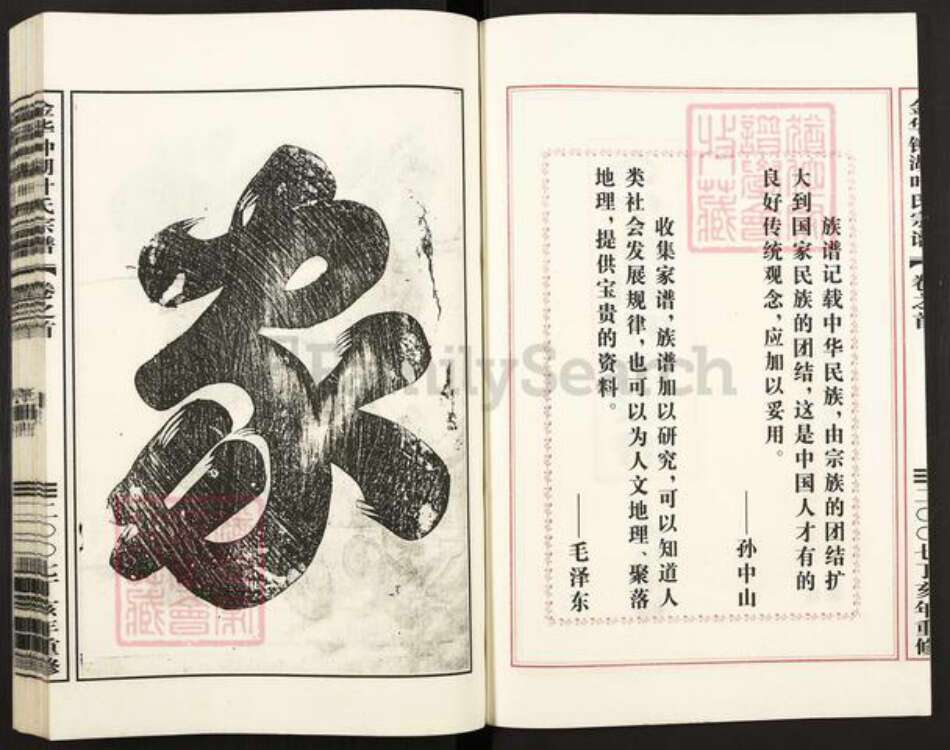 族谱记载中华民族，由宗族的团结扩
大到国家民族的团结，这是中国人才有的
良好传统观念，应加以妥用。
——孙中山
收集家谱，族谱加以研究，可以知道人
类社会发展规律，也可以为人文地理、聚落
地理，提供宝贵的资料。
——毛泽东
金华钟湖叶氏宗谱
卷之首
二〇〇七丁亥年重修
金华钟湖叶氏宗谱
卷之首
二〇〇七丁亥年重修
FamilySearch